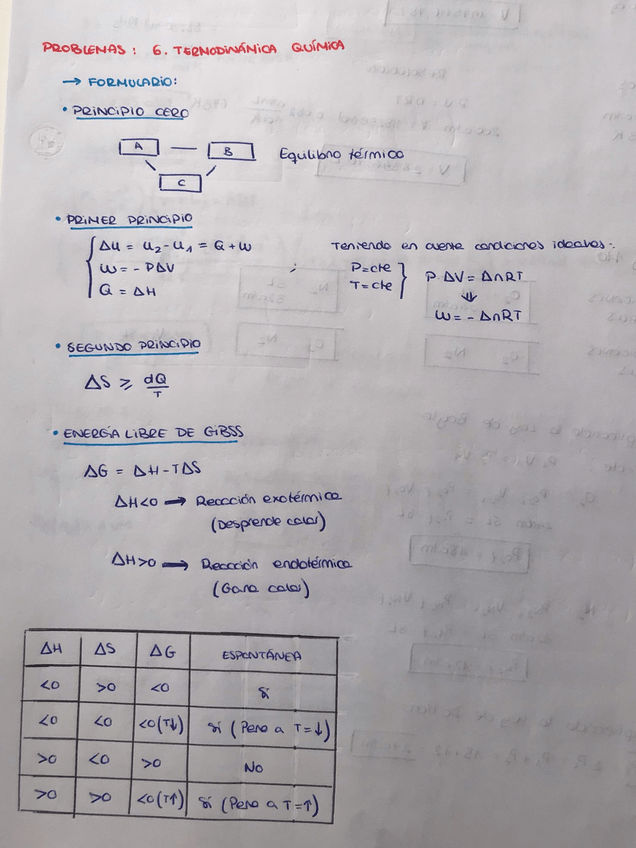 PROBLEMAS: 6. TERMODINÁMICA QUÍMICA
→ FORMULARIO:
• PRINCIPIO CERO
A — B
C
Equilibrio térmico
• PRIMER PRINCIPIO
ΔU = U2 - U1 = Q + W
W = - PΔV
Q = ΔH
;
Teniendo en cuenta condiciones ideales:
P=cte
T=cte
P·ΔV = ΔnRT
⇓
W = - ΔnRT
• SEGUNDO PRINCIPIO
ΔS ≥ dQ/T
• ENERGÍA LIBRE DE GIBSS
ΔG = ΔH - TΔS
ΔH<0 → Reacción exotérmica
(Desprende calor)
ΔH>0 → Reacción endotérmica
(Gana calor)
ΔH ΔS ΔG ESPONTÁNEA
<0 >0 <0 Sí
<0 <0 <0 (T↓) Sí (Pero a T=↓)
>0 <0 >0 No
>0 >0 <0 (T↑) Sí (Pero a T=↑)